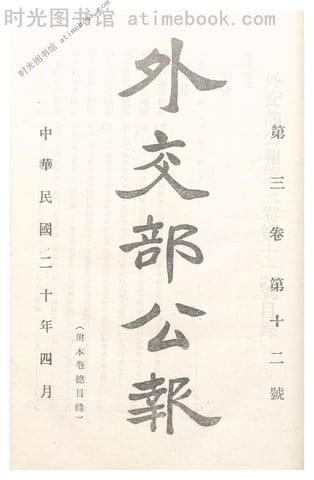 时光图书馆 www.atimebook.com
时光图书馆 atimebook.com
第三卷第十二號
外交部公報
(附本卷總目錄)
中華民國二十年四月